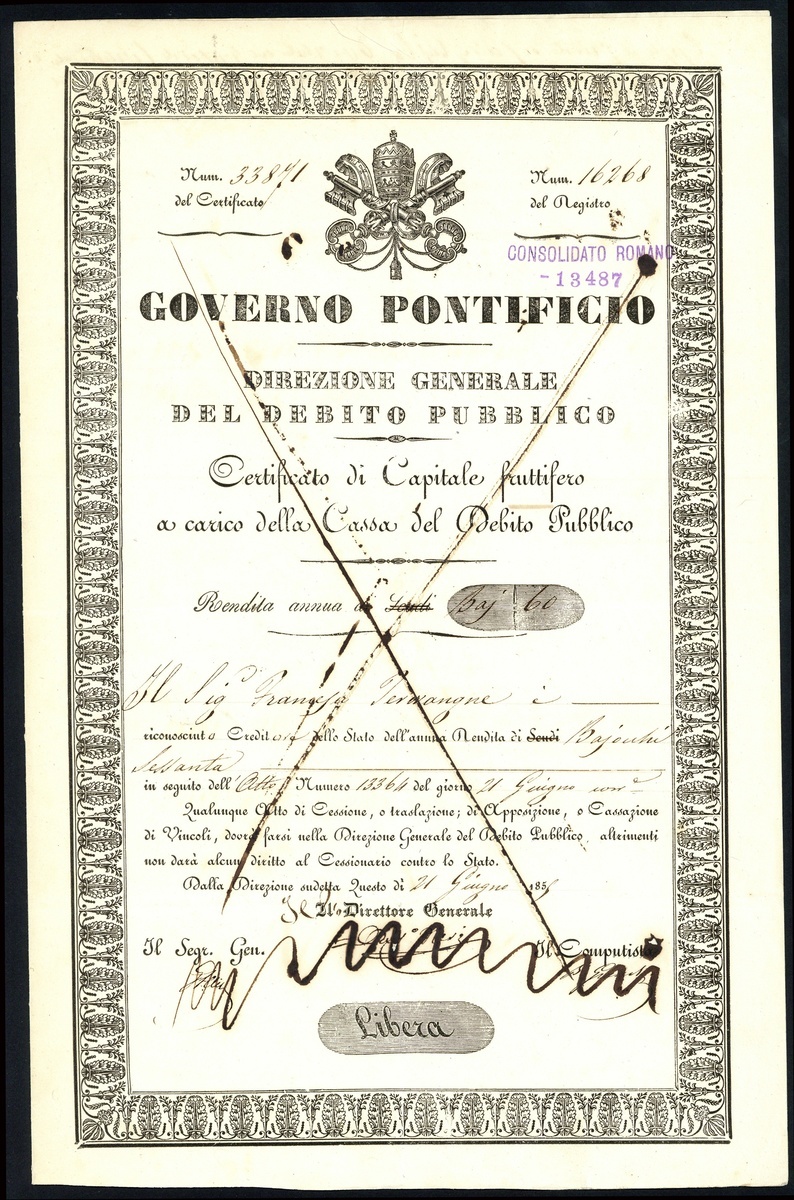 Num. 33871
del Certificato
Num. 16268
del Registro
CONSOLIDATO ROMANO
-13487
GOVERNO PONTIFICIO
DIREZIONE GENERALE
DEL DEBITO PUBBLICO
Certificato di Capitale fruttifero
a carico della Cassa del Debito Pubblico
Rendita annua di Scudi Baj 60
Il Sig.ra Francesca è
riconosciuto Creditore dello Stato dell'annua Rendita di Scudi Bajocchi
Sessanta
in seguito dell' Atto Numero 13364 del giorno 21 Giugno
Qualunque Atto di Cessione, o traslazione; di Apposizione, o Cassazione
di Vincoli, dovrà farsi nella Direzione Generale del Debito Pubblico altrimenti
non darà alcun diritto al Cessionario contro lo Stato.
Dalla Direzione sudetta Questo dì 21 Giugno 185
Il Direttore Generale
Il Segr. Gen.
Il Computista
Libera